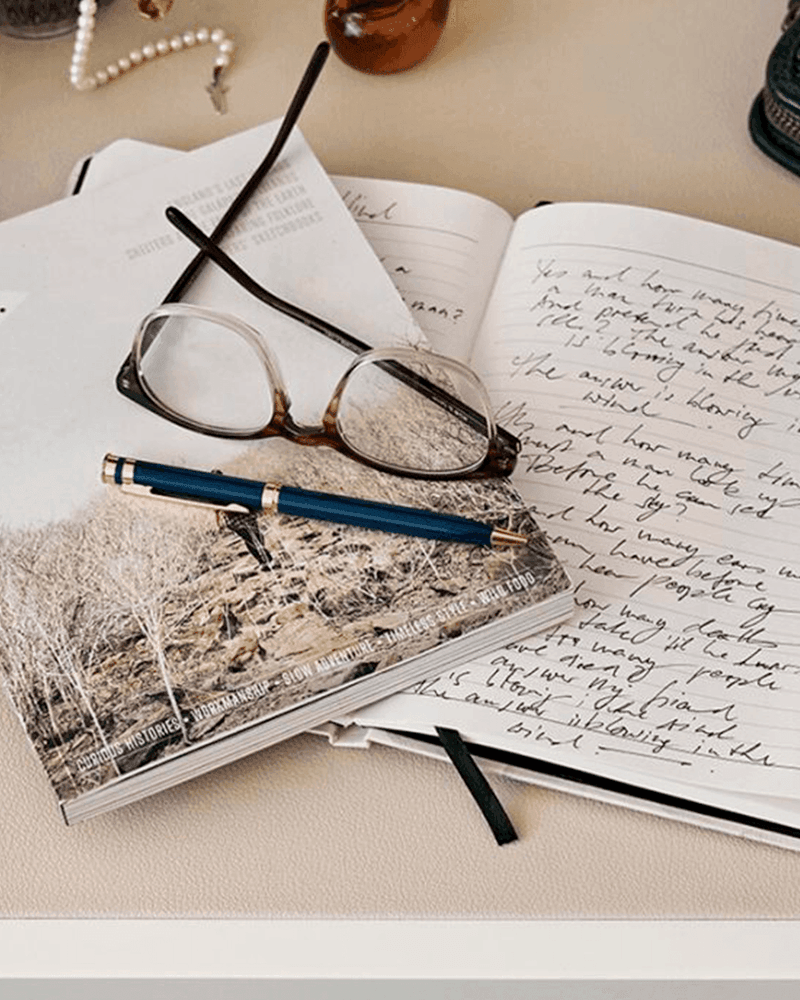 LAND'S LAST
THE EARTH
FOLKLORE
SHELTERS
SKETCHBOOKS
wind
a
man?
Yes and how many time
a man turn his
And pretend he just
see? The answer my
is blowing in the
the answer is blowing i
wind
Yes and how many tim
must a man look up
Before he can see
the sky?
and how many ears m
man have before
hear people cry
how many death
take 'til he
too many people
have died?
answer my friend
is blowing in the wind
the answer is blowing in the
wind.
CURIOUS HISTORIES • WORKMANSHIP • SLOW ADVENTURE • TIMELESS STYLE • WILD FOOD